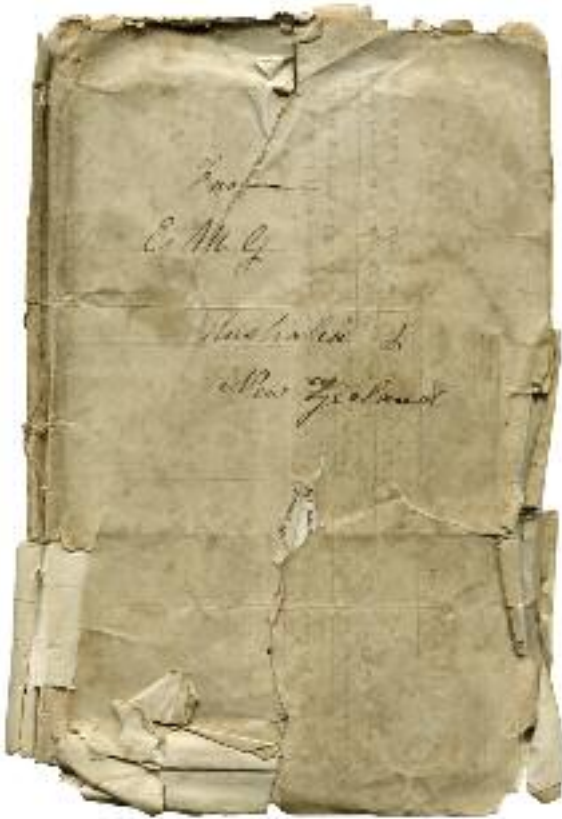 E. M. G.
Australia &
New Zealand